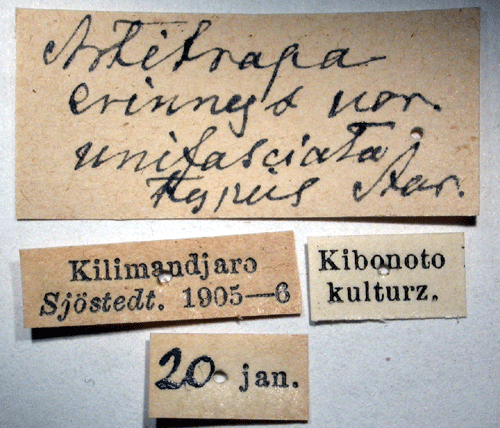 Artitropa
erinnys var.
unifasciata
typus Aur.
Kilimandjaro
Sjöstedt. 1905—6
Kibonoto
kulturz.
20 jan.